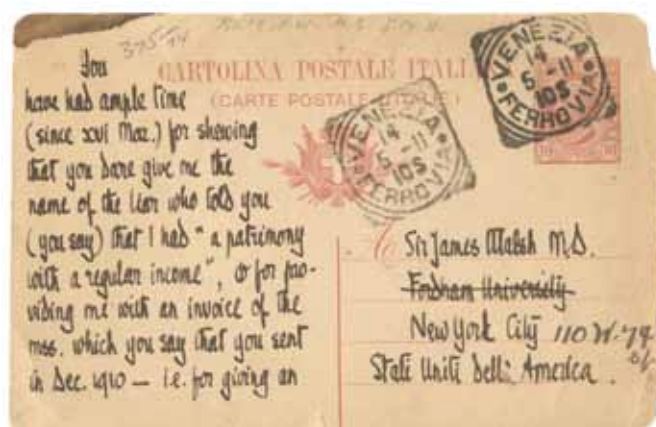 375/44
CARTOLINA POSTALE ITALI
(CARTE POSTALE D'ITALIE)
VENEZIA
14
5-11
10S
FERROVIA
VENEZIA
14
5-11
10S
FERROVIA
10
You
have had ample time
(since xvi Mar.) for shewing
that you dare give me the
name of the liar who told you
(you say) that I had "a patrimony
with a regular income", & for pro-
viding me with an invoice of the
mss. which you say that you sent
in Dec. 1910 — i.e. for giving an
Sir James Walsh M.D.
Fordham University
New York City 110 W. 74
Stati Uniti Dell' America.